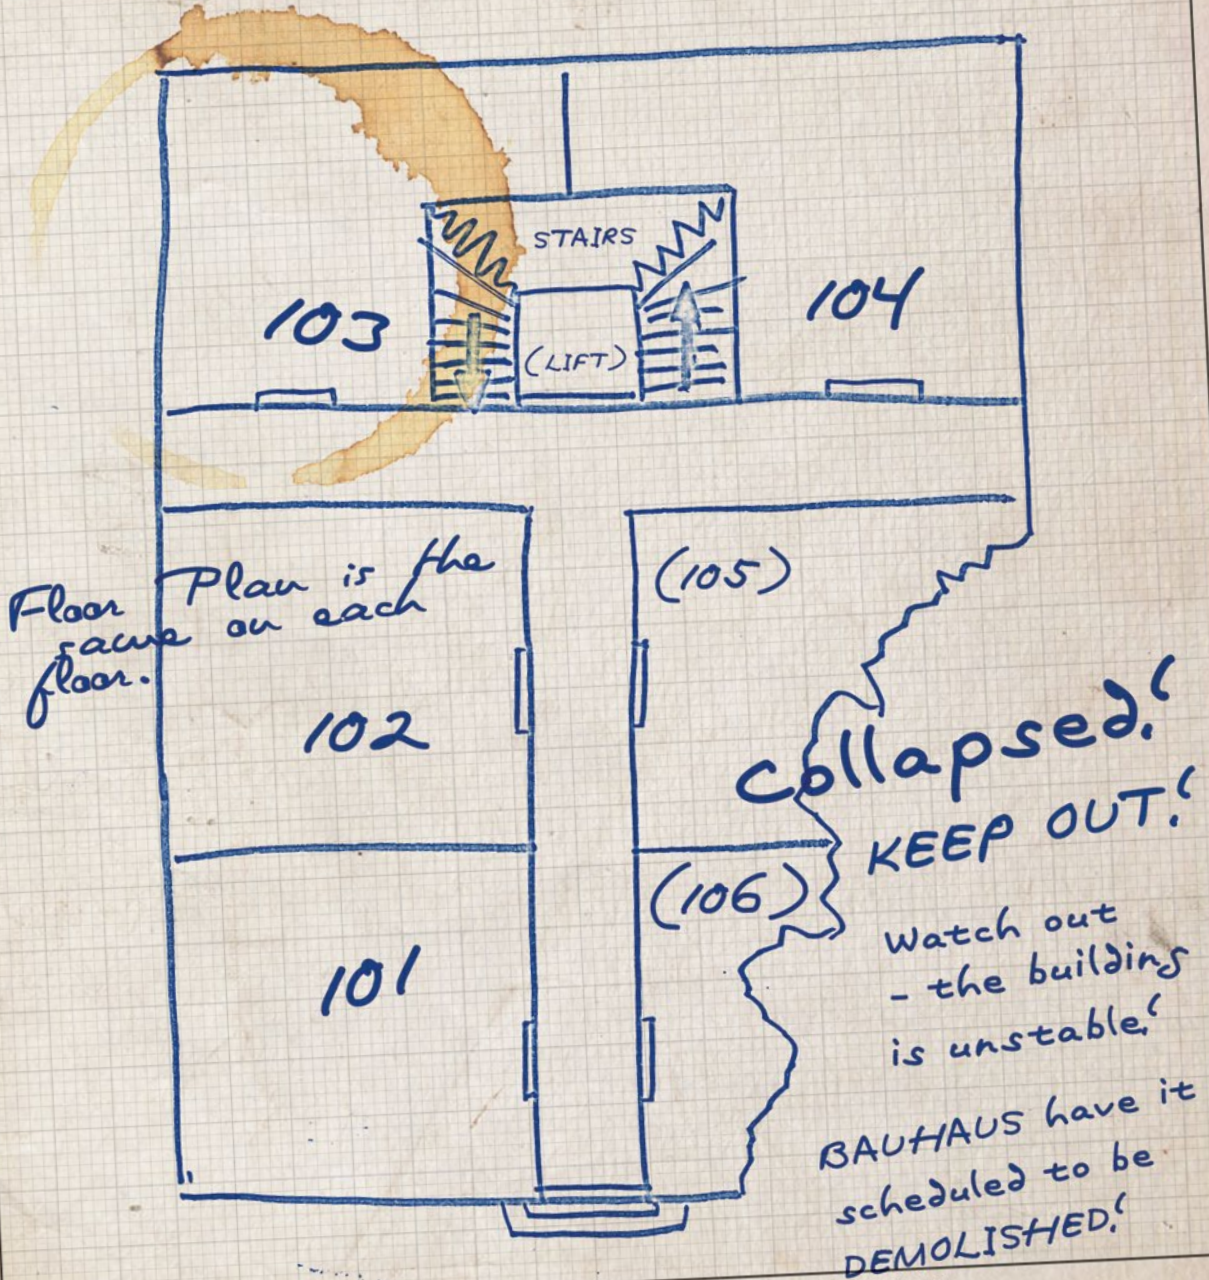 STAIRS
103
(LIFT)
104
Floor Plan is the
same on each
floor.
(105)
102
Collapsed!
KEEP OUT!
(106)
101
Watch out
- the building
is unstable!
BAUHAUS have it
scheduled to be
DEMOLISHED!